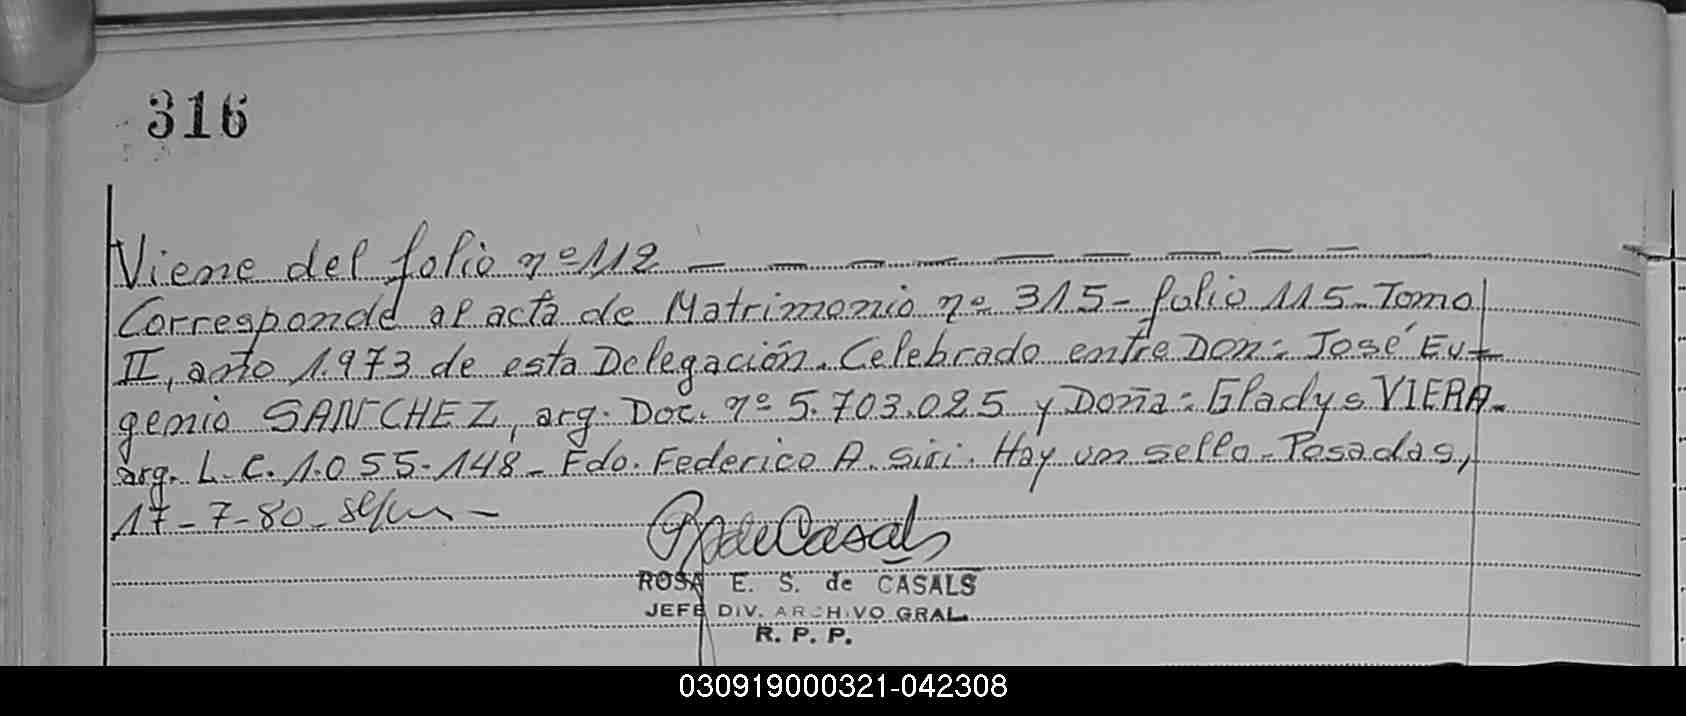 316
Viene del folio nº 112 — — — — — — — — —
Corresponde al acta de Matrimonio nº 315 - folio 115 - Tomo
II, año 1.973 de esta Delegación. Celebrado entre Don: José Eu-
genio SANCHEZ, arg. Doc. nº 5.703.025 y Doña: Gladys VIERA.
arg. L.C. 1.055.148 - Fdo. Federico A. Siri. Hay un sello - Posadas,
17-7-80 -
de Casals
ROSA E. S. de CASALS
JEFE DIV. ARCHIVO GRAL.
R. P. P.
030919000321-042308